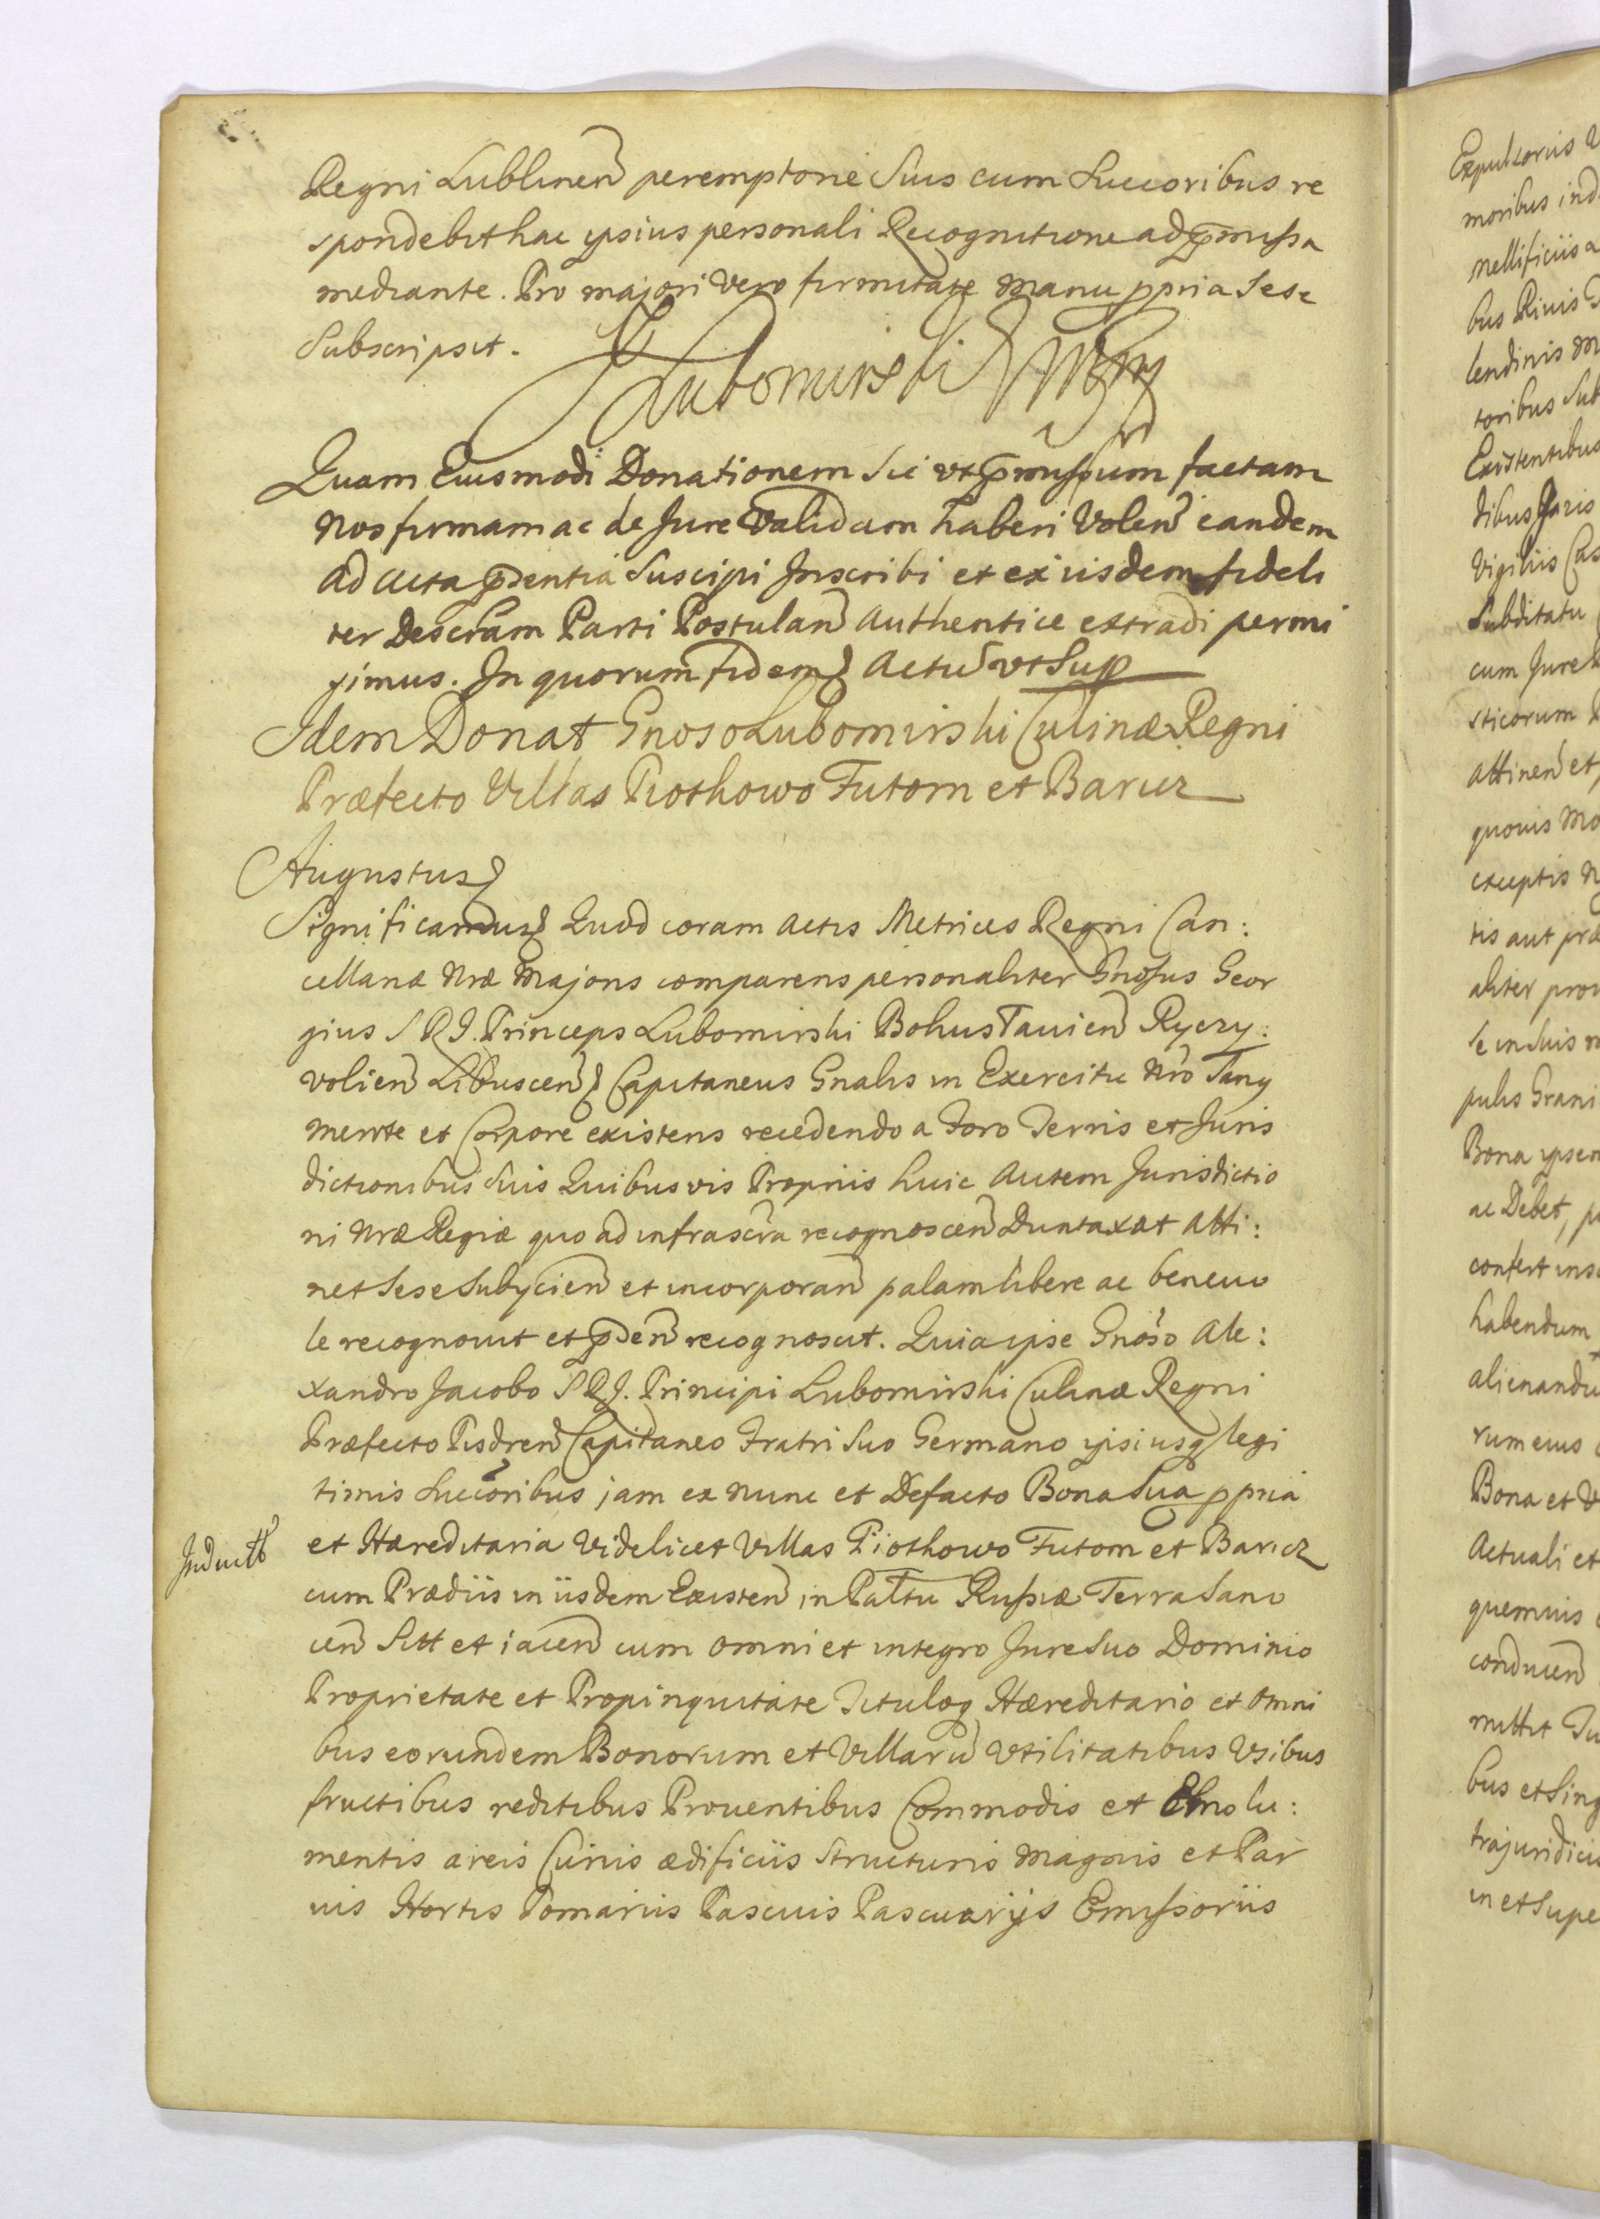 Regni Lublinen peremptorie Suis cum Succoribus re
spondebit hac ipsius personali Recognitione ad pmissa
mediante. Pro majori vero firmitate manu ppria Sese
Subscripsit.
Lubomirski
Quam Eiusmodi Donationem Sic vt pmissum factam
nos firmam ac de Jure Validam haberi Volen eandem
ad acta pdentia Suscipi Inscribi et ex iisdem fideli
ter Descram Parti Postulan Authentice extradi permi
simus. In quorum fidem Actu vt Sup
Idem Donat Gnoso Lubomirski Culinæ Regni
Præfecto Villas Piotkowo Futom et Baricz
Augustus
Significamus Quod coram Actis Metrices Regni Can:
cellariæ Nræ Majoris comparens personaliter Gnosus Geor
gius S R I. Princeps Lubomirski Bohustavien Ryczy:
volien Libuscen Capitaneus Gnalis in Exercitu Nro Sang
mente et Corpore existens recedendo a Foro Terris et Juris
dictionibus Suis Quibusvis Propriis huic Autem Jurisdictio
ni Nræ Regiæ quo ad infrascra recognoscen Duntaxat Atti:
net Sese Subijcien et incorporan palam libere ac benevo
le recognovit et pden recognoscit. Quia ipse Gnoso Ale:
xandro Jacobo S R J. Principi Lubomirski Culinæ Regni
Præfecto Pisdren Capitaneo Fratri Suo Germano ipsiusq legi
timis Succoribus jam ex nunc et Defacto Bona Sua ppria
et Hæreditaria Videlicet Villas Piotkowo Futom et Baricz
cum Prædiis in iisdem Existen in Paltu Russiæ Terra Sano
cen Sitt et iacen cum omni et integro Jure Suo Dominio
Proprietate et Propinquitate Tituloq Hæreditario et omni
bus eorundem Bonorum et Villaru Vtilitatibus Vsibus
fructibus reditibus Proventibus Commodis et Emolu:
mentis areis Curiis ædificiis Structuris Magnis et Par
uis Hortis Pomariis Pascuis Pascuarijs Emissoriis
Expulsoriis
moribus ind
mellificiis a
bus Riuis
lendinis M
toribus Sub
Existentibus
dibus Juris
Vigiliis Cas
Subditatu
cum Jure
sticorum
attinen et
quouis Mo
exceptis N
tis aut præ
aliter prou
Se in Suis
pulis Grani
Bona ipsen
ac Debet,
confert ins
habendum
alienandu
rum eius
Bona et V
Actuali et
quemuis
conducen
mittit
bus et Sing
trajuridicu
in et Supe